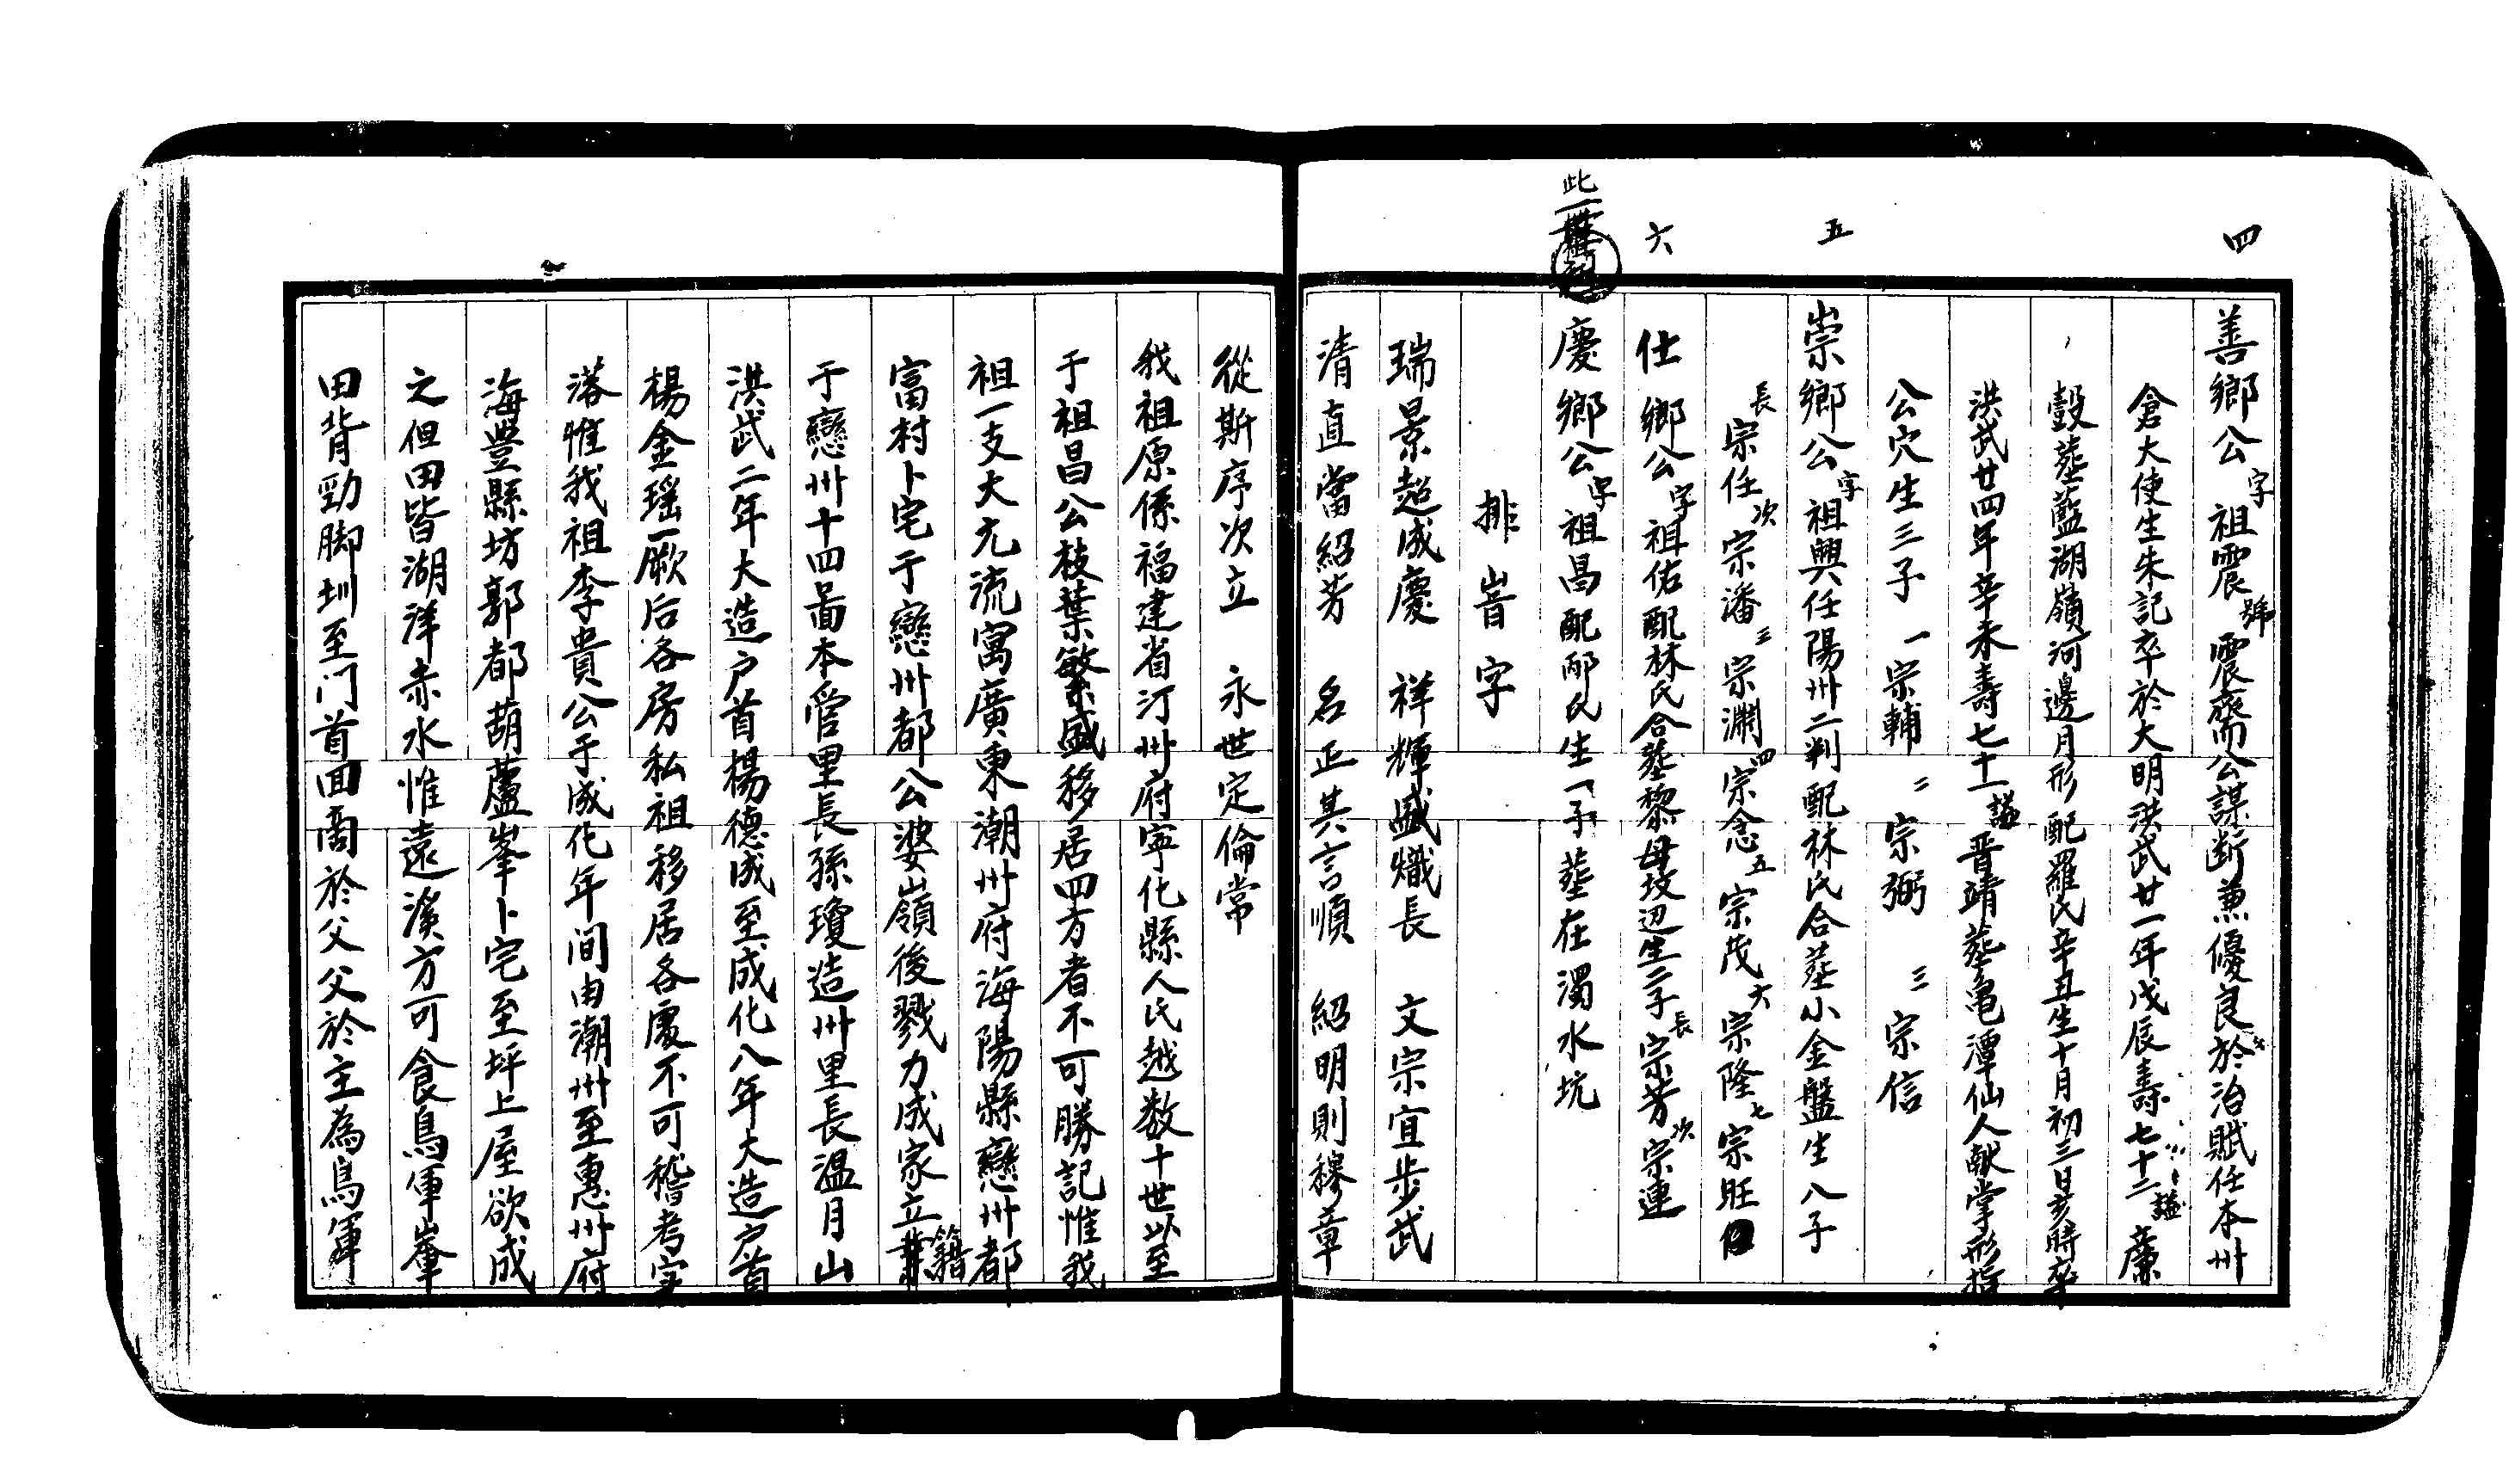 四
善鄉公字祖震號震齋公謀斷兼優良於治賦任本州
倉大使生朱記卒於大明洪武廿一年戊辰壽七十二謚廉
毅塟藍湖嶺河邊月形配羅氏辛丑生十月初三日亥時卒
洪武廿四年辛未壽七十一謚晋靖塟亀潭仙人献掌形揹
公穴生三子一宗輔二宗弼三宗信
五
崇鄉公字祖興任陽州二判配林氏合塟小金盤生八子
長宗任次宗潘三宗淵四宗念五宗茂六宗隆七宗旺
六
仕鄉公字祖佑配林氏合塟黎母坟辺生二子長宗芳次宗連
此一
慶鄉公字祖昌配邴氏生一子塟在濁水坑
排峕字
瑞景超成慶 祥輝盛熾長 文宗宜步武
清直當紹芳 名正其言順 紹明則穆章
從斯序次立 永世定倫常
我祖原係福建省汀州府寧化縣人氏越数十世以至
于祖昌公枝葉繁盛移居四方者不可勝記惟我
祖一支大元流寓廣東潮州府海陽縣戀州都
富村卜宅于戀州都公婆嶺後戮力成家立籍
于戀州十四啚本管里長孫瓊造州里長温月山
洪武二年大造户首楊德成至成化八年大造户首
楊金瑶一厥后各房私祖移居各處不可稽考定
落惟我祖李貴公于成化年间由潮州至惠州府
海豐縣坊郭都葫蘆峯卜宅至坪上屋欲成
之但田皆湖洋赤水惟遠溪方可食鳥渾輋
田背勁脚圳至门首回啇於父父於主為鳥渾